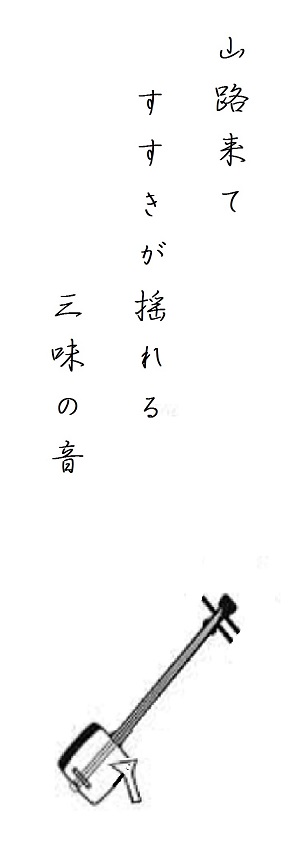 山路来て
すすきが揺れる
三味の音